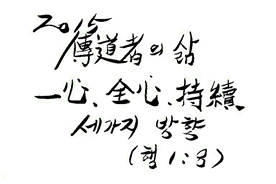 2015
傳道者의 삶
一心、全心、持續
세가지 방향
(행 1:8)